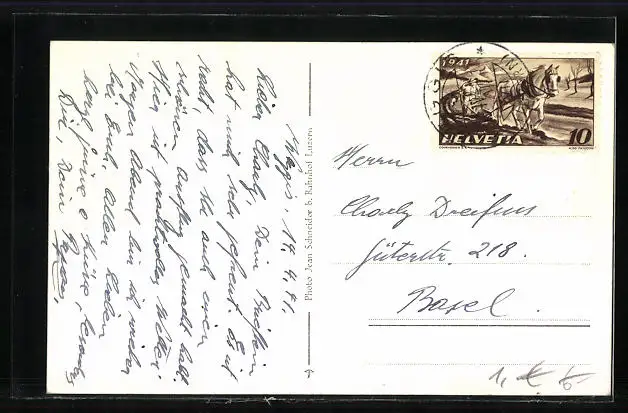 Weggis, 17. 4. 41.
Lieber Charly, Dein Brieflein
hat mich sehr gefreut. Es ist
recht, dass Ihr auch einen
schönen Ausflug gemacht habt.
Hier ist prachtvolles Wetter.
Morgen Abend bin ich wieder
bei Euch. Allen Lieben
herzl. Grüsse & Küsse, besonders
Dir, Dein
Photo Jean Schneider b. Bahnhof Luzern
1941
HELVETIA
10
Herrn
Charly Dreifuss
Güterstr. 218.
Basel.
1,